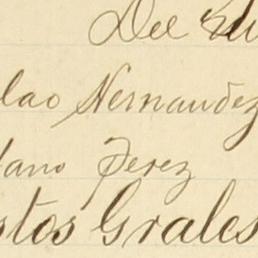 Del
lao Hernandez
tano Perez
stos Grales